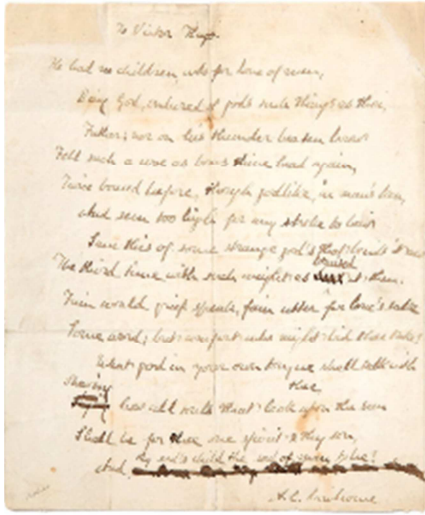 To Victor Hugo.
He had no children, who for love of men,
Being God, endured of gods such things as thou,
Father; nor on his thunder beaten brow
Fell such a woe as bows thine head again,
Twice bowed before, though godlike, in man's
And seen too high for any stroke to bow
Save this of some strange god's that bends it now
The third time with such weight as bruised it then.
Fain would grief speak, fain utter for love's sake
Some word; but comfort who might bid thee take?
What god in your own tongue shall talk with
thee,
Showing how all souls that look upon the sun
Shall be for thee one spirit & thy son,
And thy soul's child the soul of man to be?
A. C. Swinburne